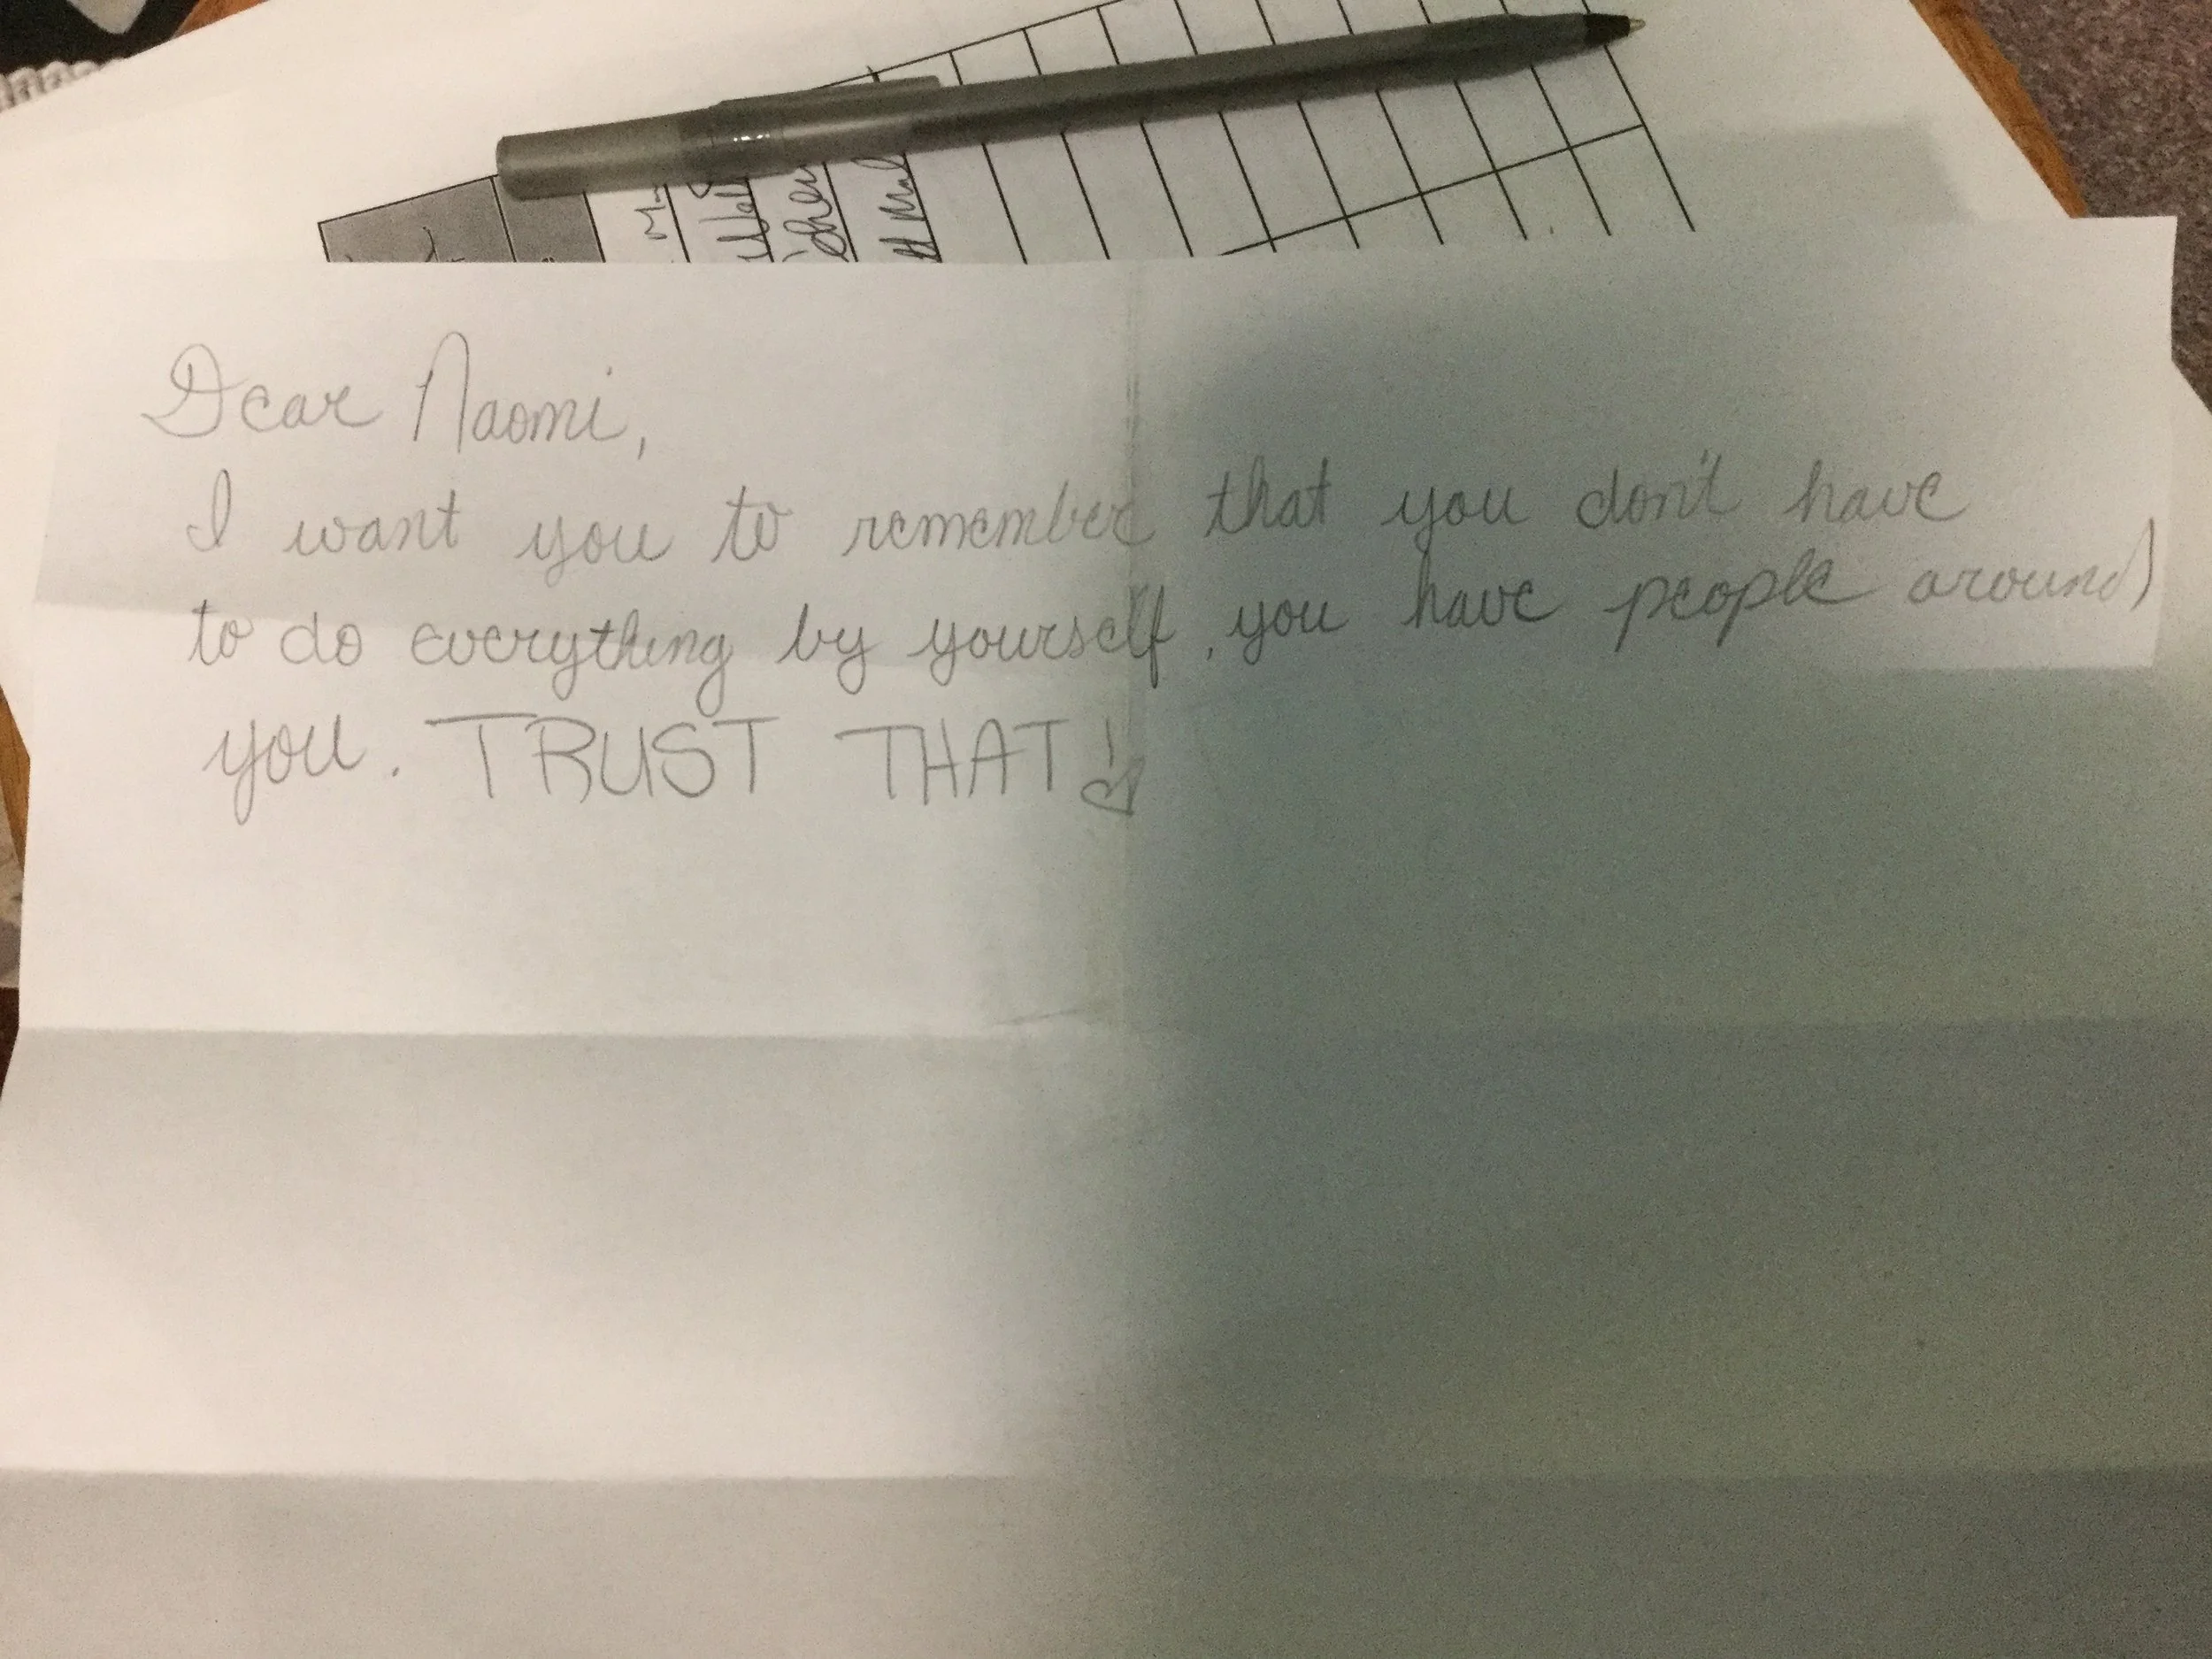 Dear Naomi,
I want you to remember that you don't have
to do everything by yourself, you have people around
you. TRUST THAT!